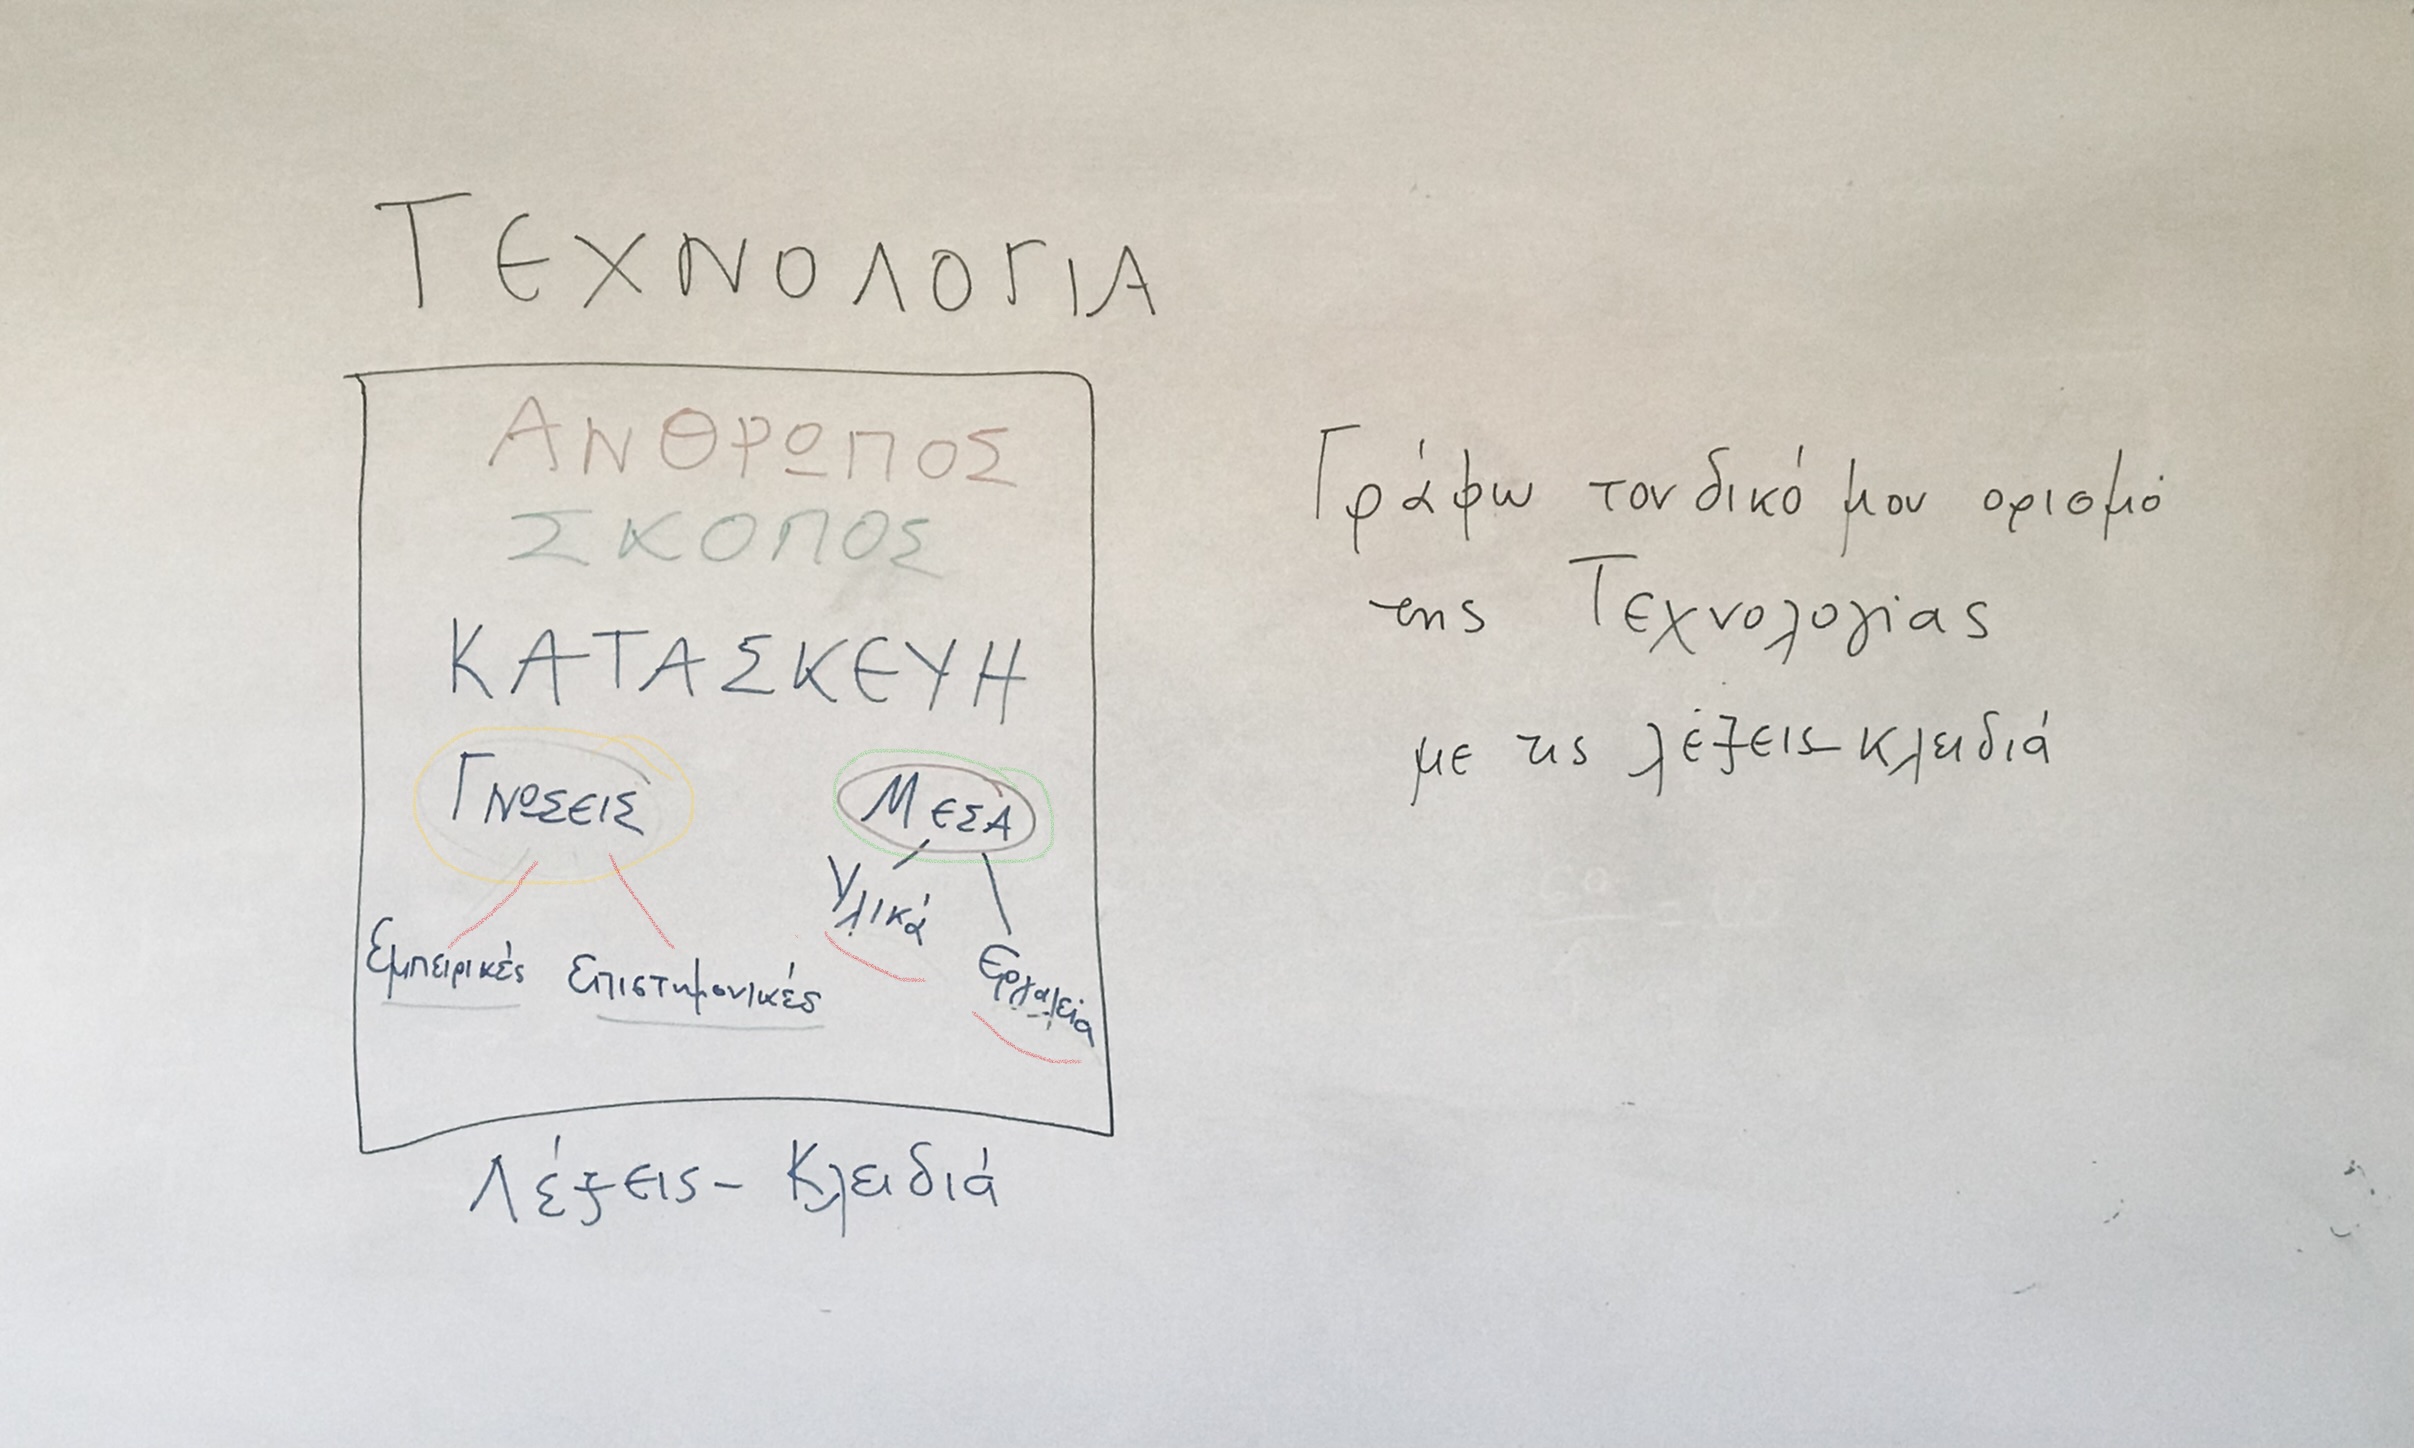 ΤΕΧΝΟΛΟΓΙΑ
ΑΝΘΡΩΠΟΣ
ΣΚΟΠΟΣ
ΚΑΤΑΣΚΕΥΗ
ΓΝΩΣΕΙΣ ΜΕΣΑ
Υλικά
Εμπειρικές Επιστημονικές Εργαλεία
Λέξεις - Κλειδιά
Γράφω τον δικό μου ορισμό
της Τεχνολογίας
με τις λέξεις-κλειδιά